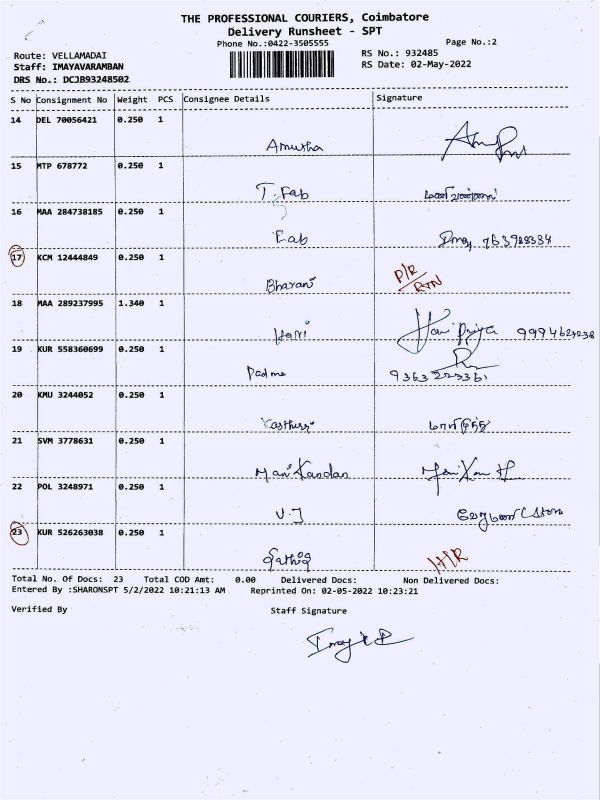 THE PROFESSIONAL COURIERS, Coimbatore
Delivery Runsheet - SPT
Phone No.:0422-3505555
Page No.:2
Route: VELLAMADAI
RS No.: 932485
Staff: IMAYAVARAMBAN
RS Date: 02-May-2022
DRS No.: DCJB93248502
S No Consignment No Weight PCS Consignee Details Signature
14 DEL 70056421 0.250 1
Amutha
15 MTP 678772 0.250 1
T. Fab
16 MAA 284738185 0.250 1
Fab
17 KCM 12444849 0.250 1
Bharani P/R RTN
18 MAA 289237995 1.340 1
Hari Hari Priya
19 KUR 558360699 0.250 1
Padma
20 KMU 3244052 0.250 1
21 SVM 3778631 0.250 1
Mani Kandan
22 POL 3248971 0.250 1
V.J
23 KUR 526263038 0.250 1
Total No. Of Docs: 23 Total COD Amt: 0.00 Delivered Docs: Non Delivered Docs:
Entered By :SHARONSPT 5/2/2022 10:21:13 AM Reprinted On: 02-05-2022 10:23:21
Verified By Staff Signature